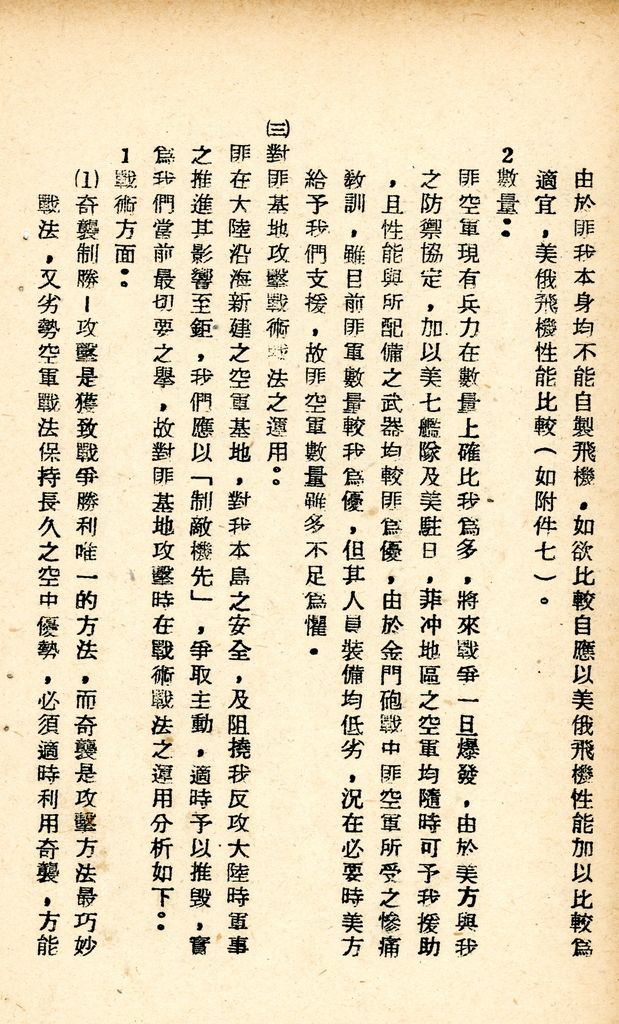 由於匪我本身均不能自製飛機。如欲比較自應以美俄飛機性能加以比較爲
適宜，美俄飛機性能比較（如附件七）。
2數量：
匪空軍現有兵力在數量上確比我爲多，將來戰爭一旦爆發，由於美方與我
之防禦協定，加以美七艦隊及美駐日，菲冲地區之空軍均隨時可予我援助
，且性能與所配備之武器均較匪爲優，由於金門砲戰中匪空軍所受之慘痛
教訓，雖目前匪軍數量較我爲優，但其人員裝備均低劣，況在必要時美方
給予我們支援，故匪空軍數量雖多不足爲懼。
㈢對匪基地攻擊戰術戰法之運用：
匪在大陸沿海新建之空軍基地，對我本島之安全，及阻撓我反攻大陸時軍事
之推進其影響至鉅，我們應以「制敵機先」，爭取主動，適時予以摧毀，實
爲我們當前最切要之舉，故對匪基地攻擊時在戰術戰法之運用分析如下：
1戰術方面：
⑴奇襲制勝－攻擊是獲致戰爭勝利唯一的方法，而奇襲是攻擊方法最巧妙
戰法，又劣勢空軍戰法保持長久之空中優勢，必須適時利用奇襲，方能